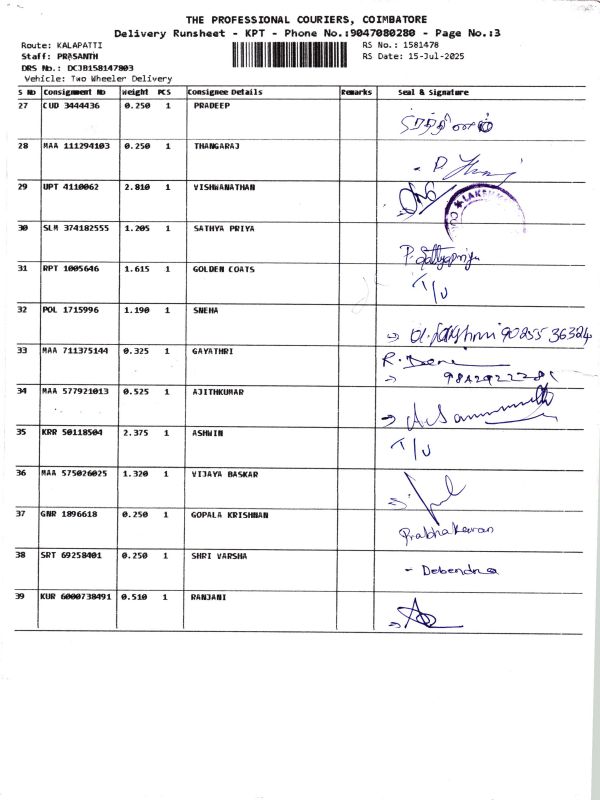 THE PROFESSIONAL COURIERS, COIMBATORE
Delivery Runsheet - KPT - Phone No.:9047080280 - Page No.:3
Route: KALAPATTI RS No.: 1581478
Staff: PRASANTH RS Date: 15-Jul-2025
DRS No.: DCJB158147803
Vehicle: Two Wheeler Delivery
S No Consignment No Weight PCS Consignee Details Remarks Seal & Signature
27 CUD 3444436 0.250 1 PRADEEP
28 MAA 111294103 0.250 1 THANGARAJ
29 UPT 4110062 2.810 1 VISHWANATHAN
30 SLM 374182555 1.205 1 SATHYA PRIYA P. Sathyapriya
31 RPT 1005646 1.615 1 GOLDEN COATS T/U
32 POL 1715996 1.190 1 SNEHA 90255 36324
33 MAA 711375144 0.325 1 GAYATHRI
34 MAA 577921013 0.525 1 AJITHKUMAR
35 KRR 50118504 2.375 1 ASHWIN T/U
36 MAA 575026025 1.320 1 VIJAYA BASKAR
37 GNR 1896618 0.250 1 GOPALA KRISHNAN Prabhakaran
38 SRT 69258401 0.250 1 SHRI VARSHA - Debendra
39 KUR 6000738491 0.510 1 RANJANI